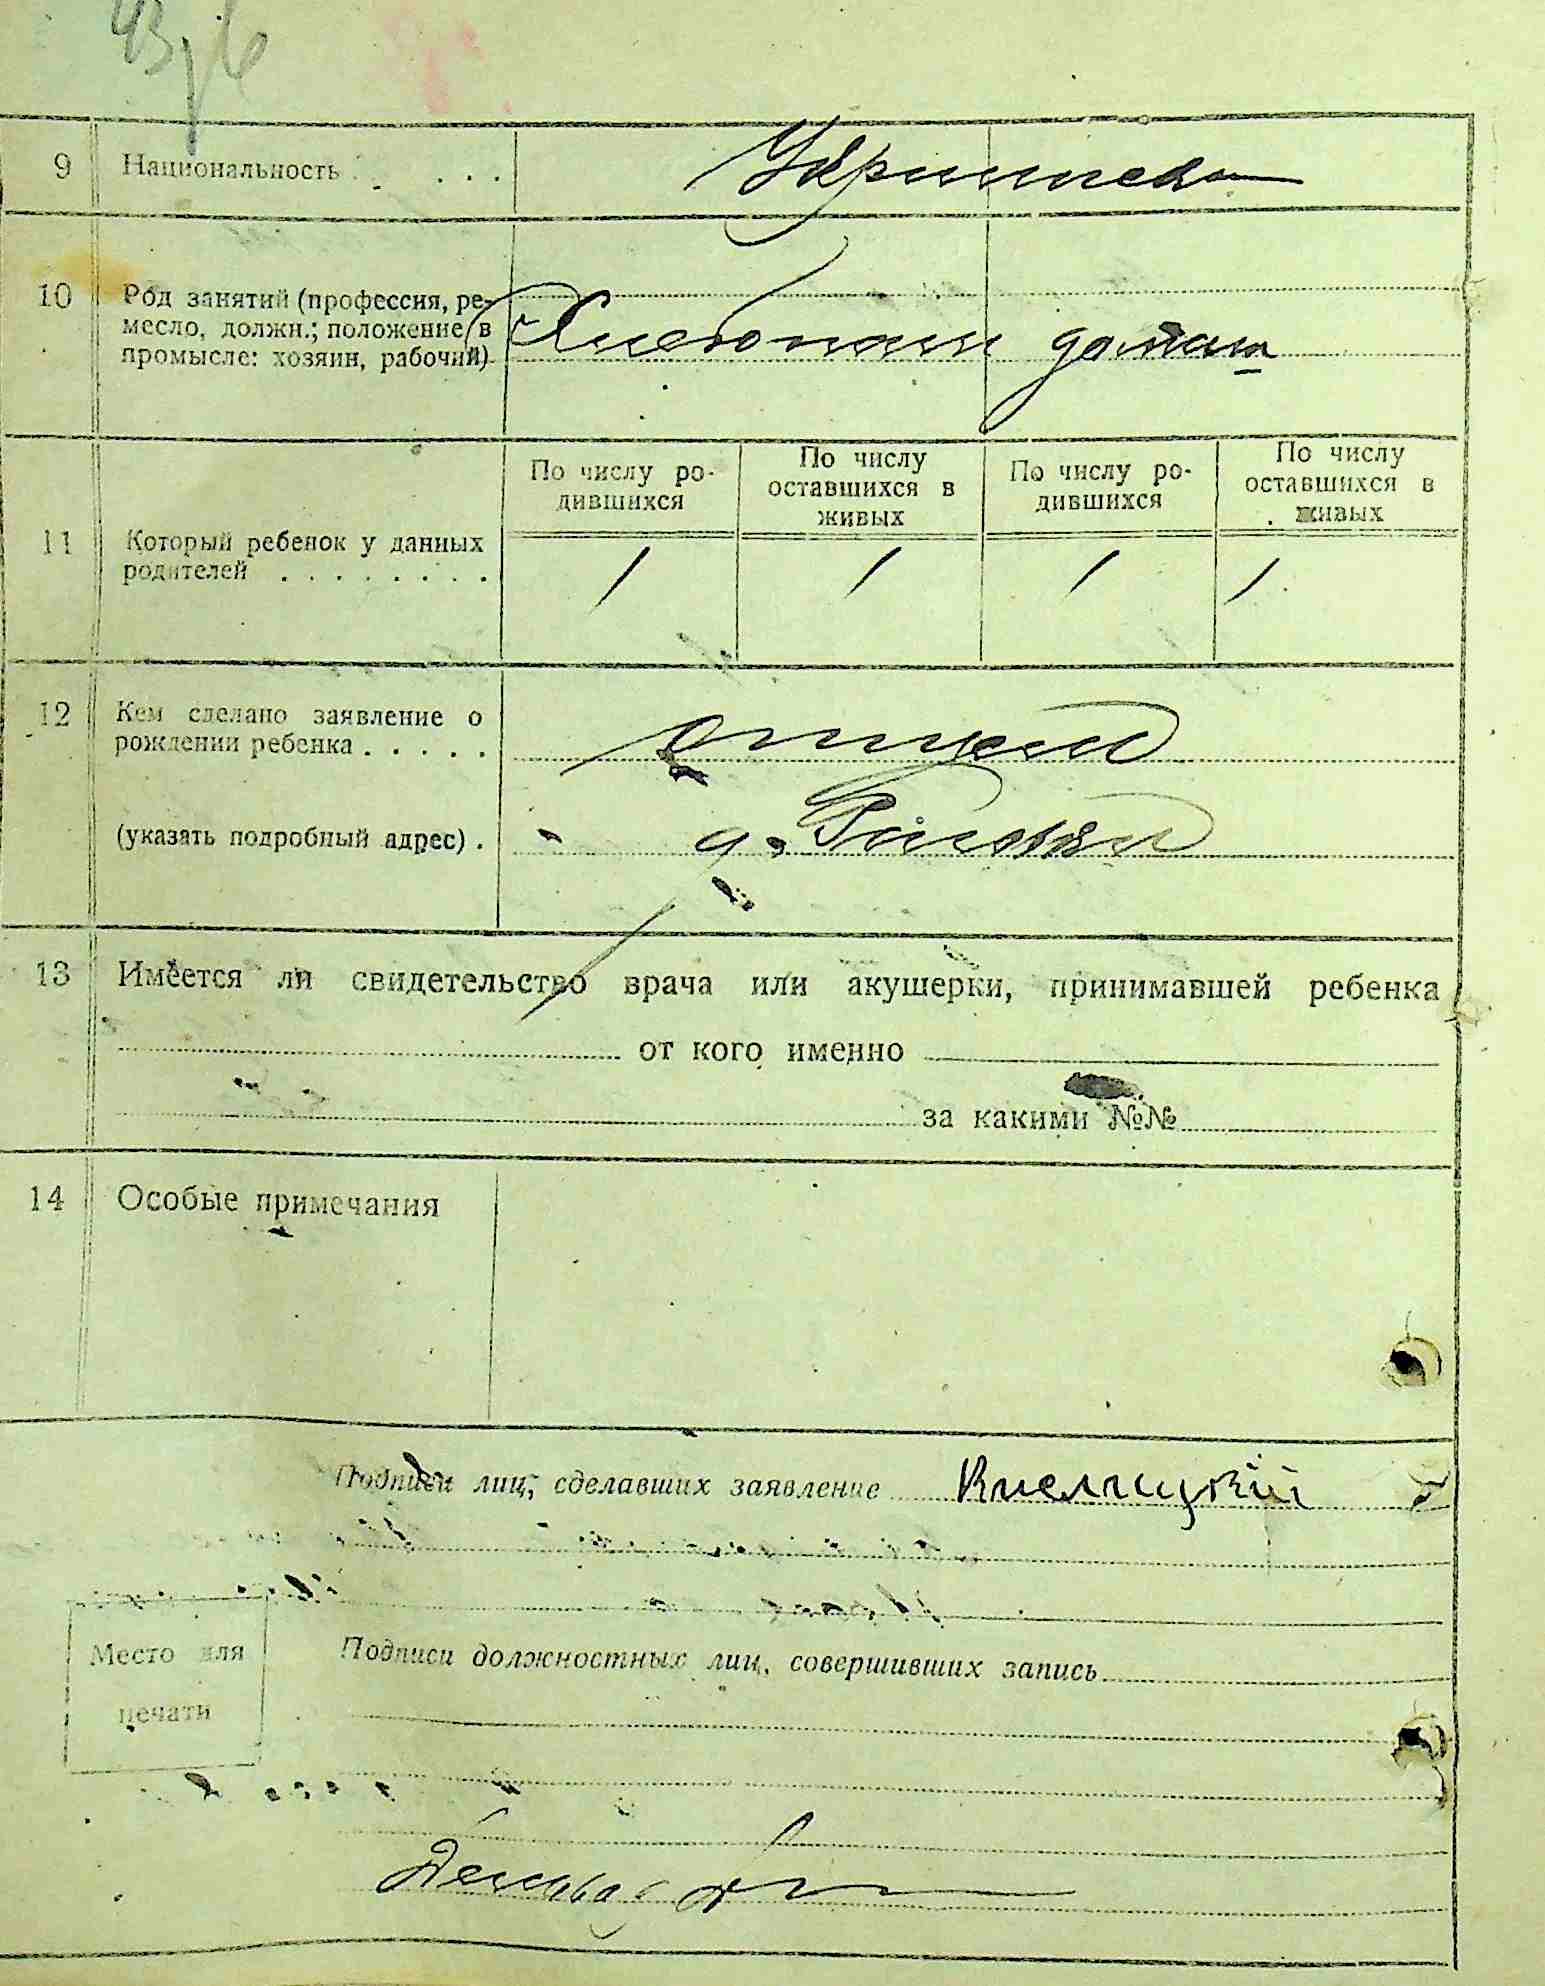 9 Национальность . . . .
10 Род занятий (профессия, ре-
месло, должн.; положение в
промысле: хозяин, рабочий)
Хлебопаш домаш
11 Который ребенок у данных
родителей . . . . . . . .
По числу ро-
дившихся
По числу
оставшихся в
живых
По числу ро-
дившихся
По числу
оставшихся в
живых
1 1 1 1
12 Кем сделано заявление о
рождении ребенка . . . . .
отцем
(указать подробный адрес) .
13 Имеется ли свидетельство врача или акушерки, принимавшей ребенка
от кого именно
за какими №№
14 Особые примечания
Подписи лиц, сделавших заявление
Место для
печати
Подписи должностных лиц, совершивших запись